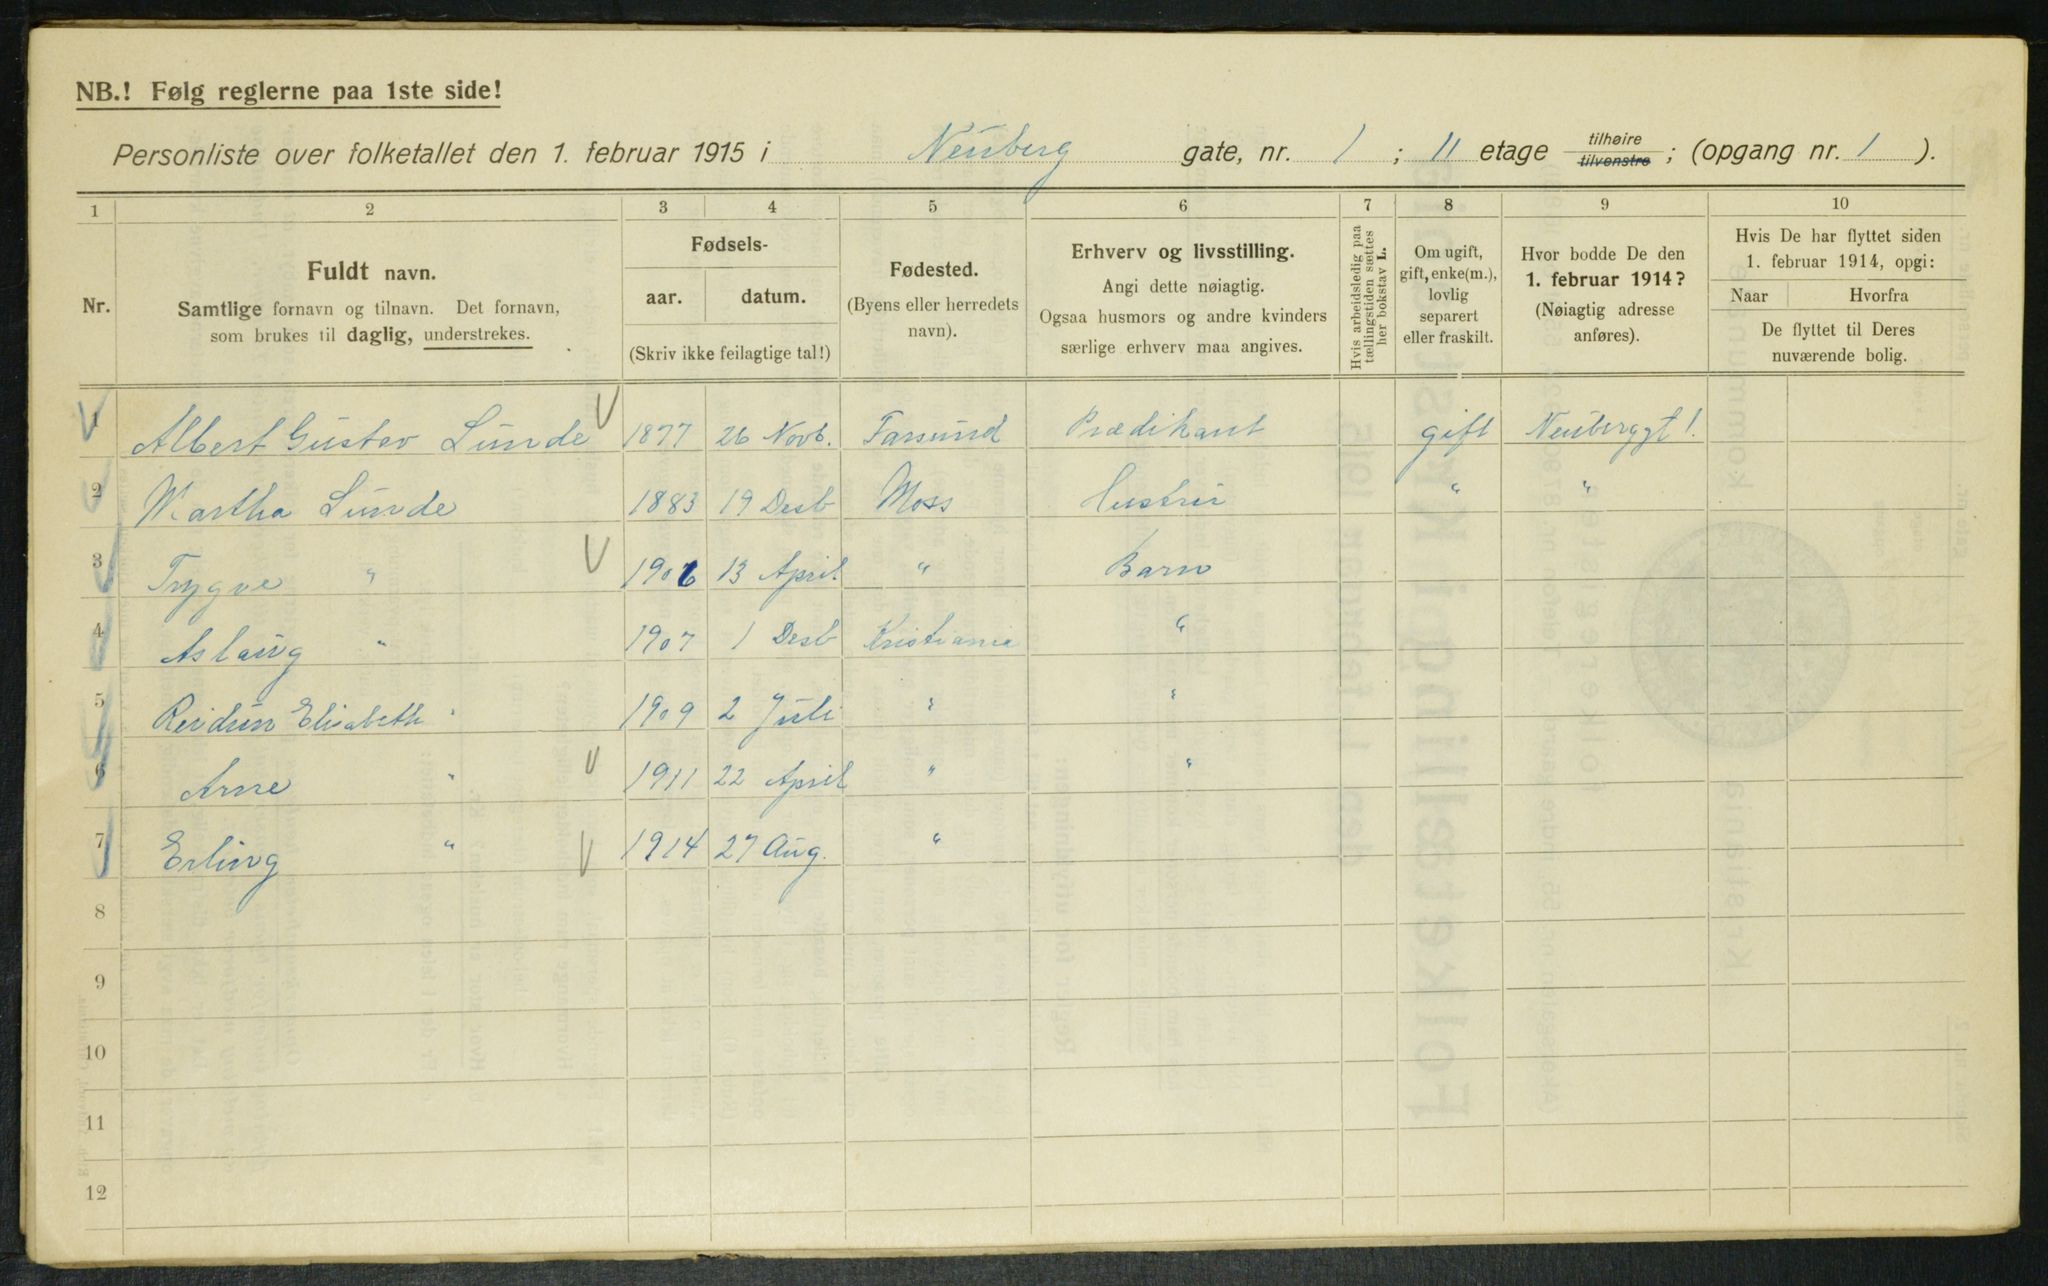 NB.! Følg reglerne paa 1ste side!
Personliste over folketallet den 1. februar 1915 i Neuberg gate, nr. 1 ; II etage tilhøire tilvenstre ; (opgang nr. 1 ).
1 2 3 4 5 6 7 8 9 10
Nr.
Fuldt navn.
Samtlige fornavn og tilnavn. Det fornavn,
som brukes til daglig, understrekes.
Fødsels-
aar. datum.
(Skriv ikke feilagtige tal!)
Fødested.
(Byens eller herredets
navn).
Erhverv og livsstilling.
Angi dette nøiagtig.
Ogsaa husmors og andre kvinders
særlige erhverv maa angives.
Hvis arbeidsledig paa
tællingstiden sættes
her bokstav L.
Om ugift,
gift, enke(m.),
lovlig
separert
eller fraskilt.
Hvor bodde De den
1. februar 1914?
(Nøiagtig adresse
anføres).
Hvis De har flyttet siden
1. februar 1914, opgi:
Naar Hvorfra
De flyttet til Deres
nuværende bolig.
1 Albert Gustav Lunde 1877 26 Novb. Farsund Prædikant gift Neuberggt 1.
2 Martha Lunde 1883 19 Desb Moss Hustru " "
3 Trygve " 1906 13 April " Barn
4 Aslaug " 1907 1 Desb Kristiania "
5 Reidun Elisabeth " 1909 2 Juli " "
6 Arne " 1911 22 April " "
7 Erling " 1914 27 Aug. "
8
9
10
11
12